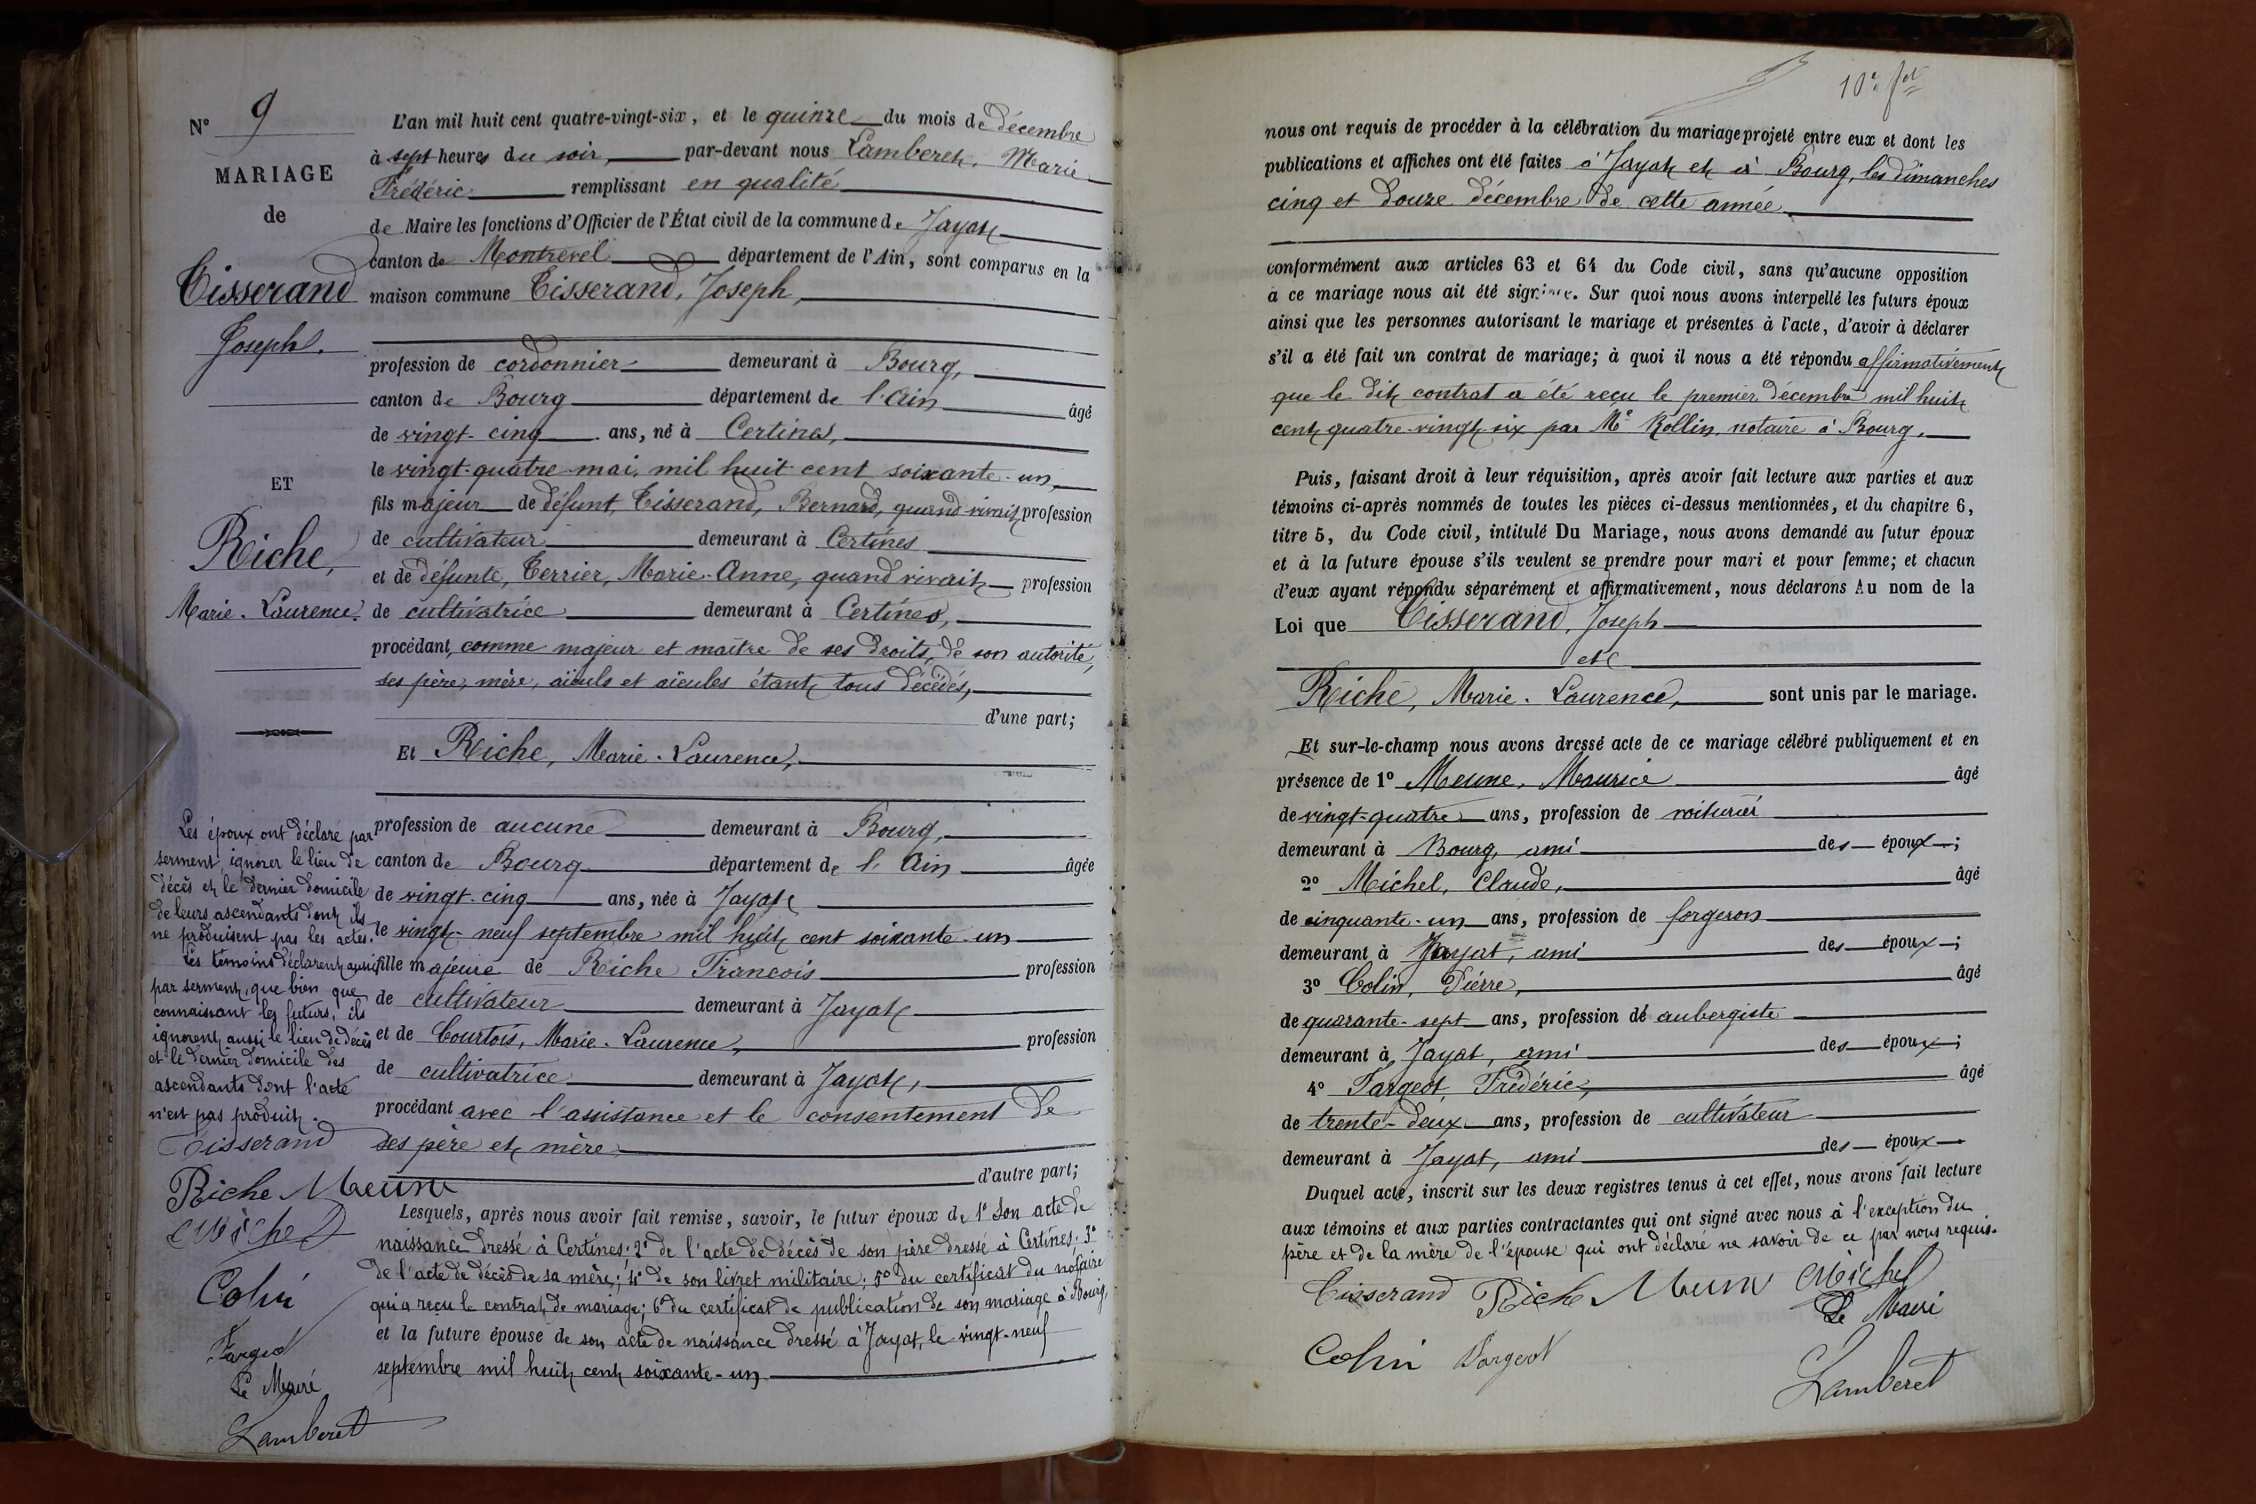 N° 9
MARIAGE
de
Tisserand
Joseph.
ET
Riche,
Marie-Laurence.
L'an mil huit cent quatre-vingt-six, et le quinze du mois de décembre
à sept heures du soir, par-devant nous Lamberet, Marie
Frédéric remplissant en qualité
de Maire les fonctions d'Officier de l'État civil de la commune de Jayat
canton de Montrevel département de l'Ain, sont comparus en la
maison commune Tisserand, Joseph,
profession de cordonnier demeurant à Bourg,
canton de Bourg département de l'Ain âgé
de vingt-cinq ans, né à Certines,
le vingt-quatre mai, mil huit cent soixante-un,
fils majeur de défunt, Tisserand, Bernard, quand vivait profession
de cultivateur demeurant à Certines
et de défunte, Terrier, Marie-Anne, quand vivait profession
de cultivatrice demeurant à Certines,
procédant, comme majeur et maître de ses droits, de son autorité,
ses père, mère, aïeuls et aïeules étant tous décédés,
d'une part;
Et Riche, Marie-Laurence,
profession de aucune demeurant à Bourg,
canton de Bourg département de l'Ain âgée
de vingt-cinq ans, née à Jayat
le vingt-neuf septembre mil huit cent soixante-un
fille majeure de Riche François profession
de cultivateur demeurant à Jayat
et de Courtois, Marie-Laurence, profession
de cultivatrice demeurant à Jayat,
procédant avec l'assistance et le consentement de
ses père et mère
d'autre part;
Lesquels, après nous avoir fait remise, savoir, le futur époux de 1° son acte de
naissance dressé à Certines; 2° de l'acte de décès de son père dressé à Certines; 3°
de l'acte de décès de sa mère; 4° de son livret militaire; 5° du certificat du notaire
qui a reçu le contrat de mariage; 6° du certificat de publication de son mariage à Bourg,
et la future épouse de son acte de naissance dressé à Jayat, le vingt-neuf
septembre mil huit cent soixante-un
Les époux ont déclaré par
serment, ignorer le lieu de
décès et le dernier domicile
de leurs ascendants dont ils
ne produisent pas les actes.
Les témoins déclarent aussi
par serment, que bien que
connaissant les futurs, ils
ignorent aussi le lieu de décès
et le dernier domicile des
ascendants dont l'acte
n'est pas produit.
Tisserand
Riche Meune
Michel
Colin
Fargeot
Le Maire
Lamberet
10e ft
nous ont requis de procéder à la célébration du mariage projeté entre eux et dont les
publications et affiches ont été faites à Jayat et à Bourg, les dimanches
cinq et douze décembre de cette année
conformément aux articles 63 et 64 du Code civil, sans qu'aucune opposition
à ce mariage nous ait été signifiée. Sur quoi nous avons interpellé les futurs époux
ainsi que les personnes autorisant le mariage et présentes à l'acte, d'avoir à déclarer
s'il a été fait un contrat de mariage; à quoi il nous a été répondu affirmativement
que le dit contrat a été reçu le premier décembre mil huit
cent quatre-vingt six par Me Rollin, notaire à Bourg.
Puis, faisant droit à leur réquisition, après avoir fait lecture aux parties et aux
témoins ci-après nommés de toutes les pièces ci-dessus mentionnées, et du chapitre 6,
titre 5, du Code civil, intitulé Du Mariage, nous avons demandé au futur époux
et à la future épouse s'ils veulent se prendre pour mari et pour femme; et chacun
d'eux ayant répondu séparément et affirmativement, nous déclarons Au nom de la
Loi que Tisserand, Joseph
et
Riche, Marie-Laurence, sont unis par le mariage.
Et sur-le-champ nous avons dressé acte de ce mariage célébré publiquement et en
présence de 1° Meune, Maurice âgé
de vingt-quatre ans, profession de voiturier
demeurant à Bourg, ami des époux;
2° Michel, Claude, âgé
de cinquante-un ans, profession de forgeron
demeurant à Jayat, ami des époux;
3° Colin, Pierre, âgé
de quarante-sept ans, profession de aubergiste
demeurant à Jayat, ami des époux;
4° Fargeot, Frédéric, âgé
de trente-deux ans, profession de cultivateur
demeurant à Jayat, ami des époux
Duquel acte, inscrit sur les deux registres tenus à cet effet, nous avons fait lecture
aux témoins et aux parties contractantes qui ont signé avec nous à l'exception du
père et de la mère de l'épouse qui ont déclaré ne savoir de ce par nous requis.
Tisserand Riche Meune Michel
Le Maire
Colin Fargeot
Lamberet